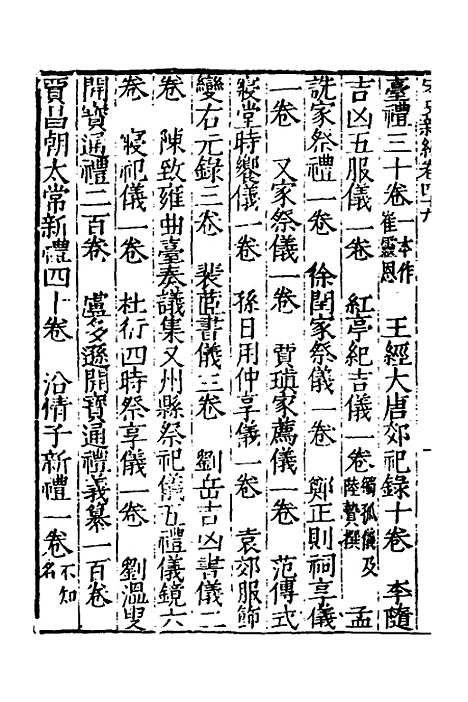 宋史新編卷四十九
臺禮三十卷一本作崔靈恩　王經大唐郊祀錄十卷　李隨
吉凶五服儀一卷　紅亭紀吉儀一卷獨孤儀及陸贄撰　孟
詵家祭禮一卷　徐閏家祭儀一卷　鄭正則祠享儀
一卷　又家祭儀一卷　賈頊家薦儀一卷　范傳式
寢堂時饗儀一卷　孫日用仲享儀一卷　袁郊服飾
變古元錄三卷　裴茝書儀三卷　劉岳吉凶書儀二
卷　陳致雍曲臺奏議集又州縣祭祀儀五禮儀鏡六
卷　寢祀儀一卷　杜衍四時祭享儀一卷　劉溫叟
開寶通禮二百卷　盧多遜開寶通禮義纂一百卷
賈昌朝太常新禮四十卷　沿情子新禮一卷不知名